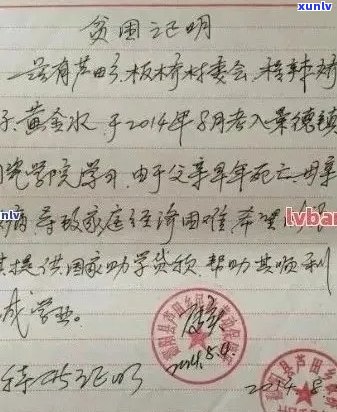 xunlv
贫困证明
兹有芦田乡板桥村委会
子黄金水于2014年8月考入景德镇
瓷学院学习,由于父亲早年死亡,母亲
nlv
病导致家庭经济困难,希望
lvban
其提供国家助学贷款,帮助其顺利
成学业。
2014.8.9
鄱阳县芦田乡
特此证明
2014.8
xunlv